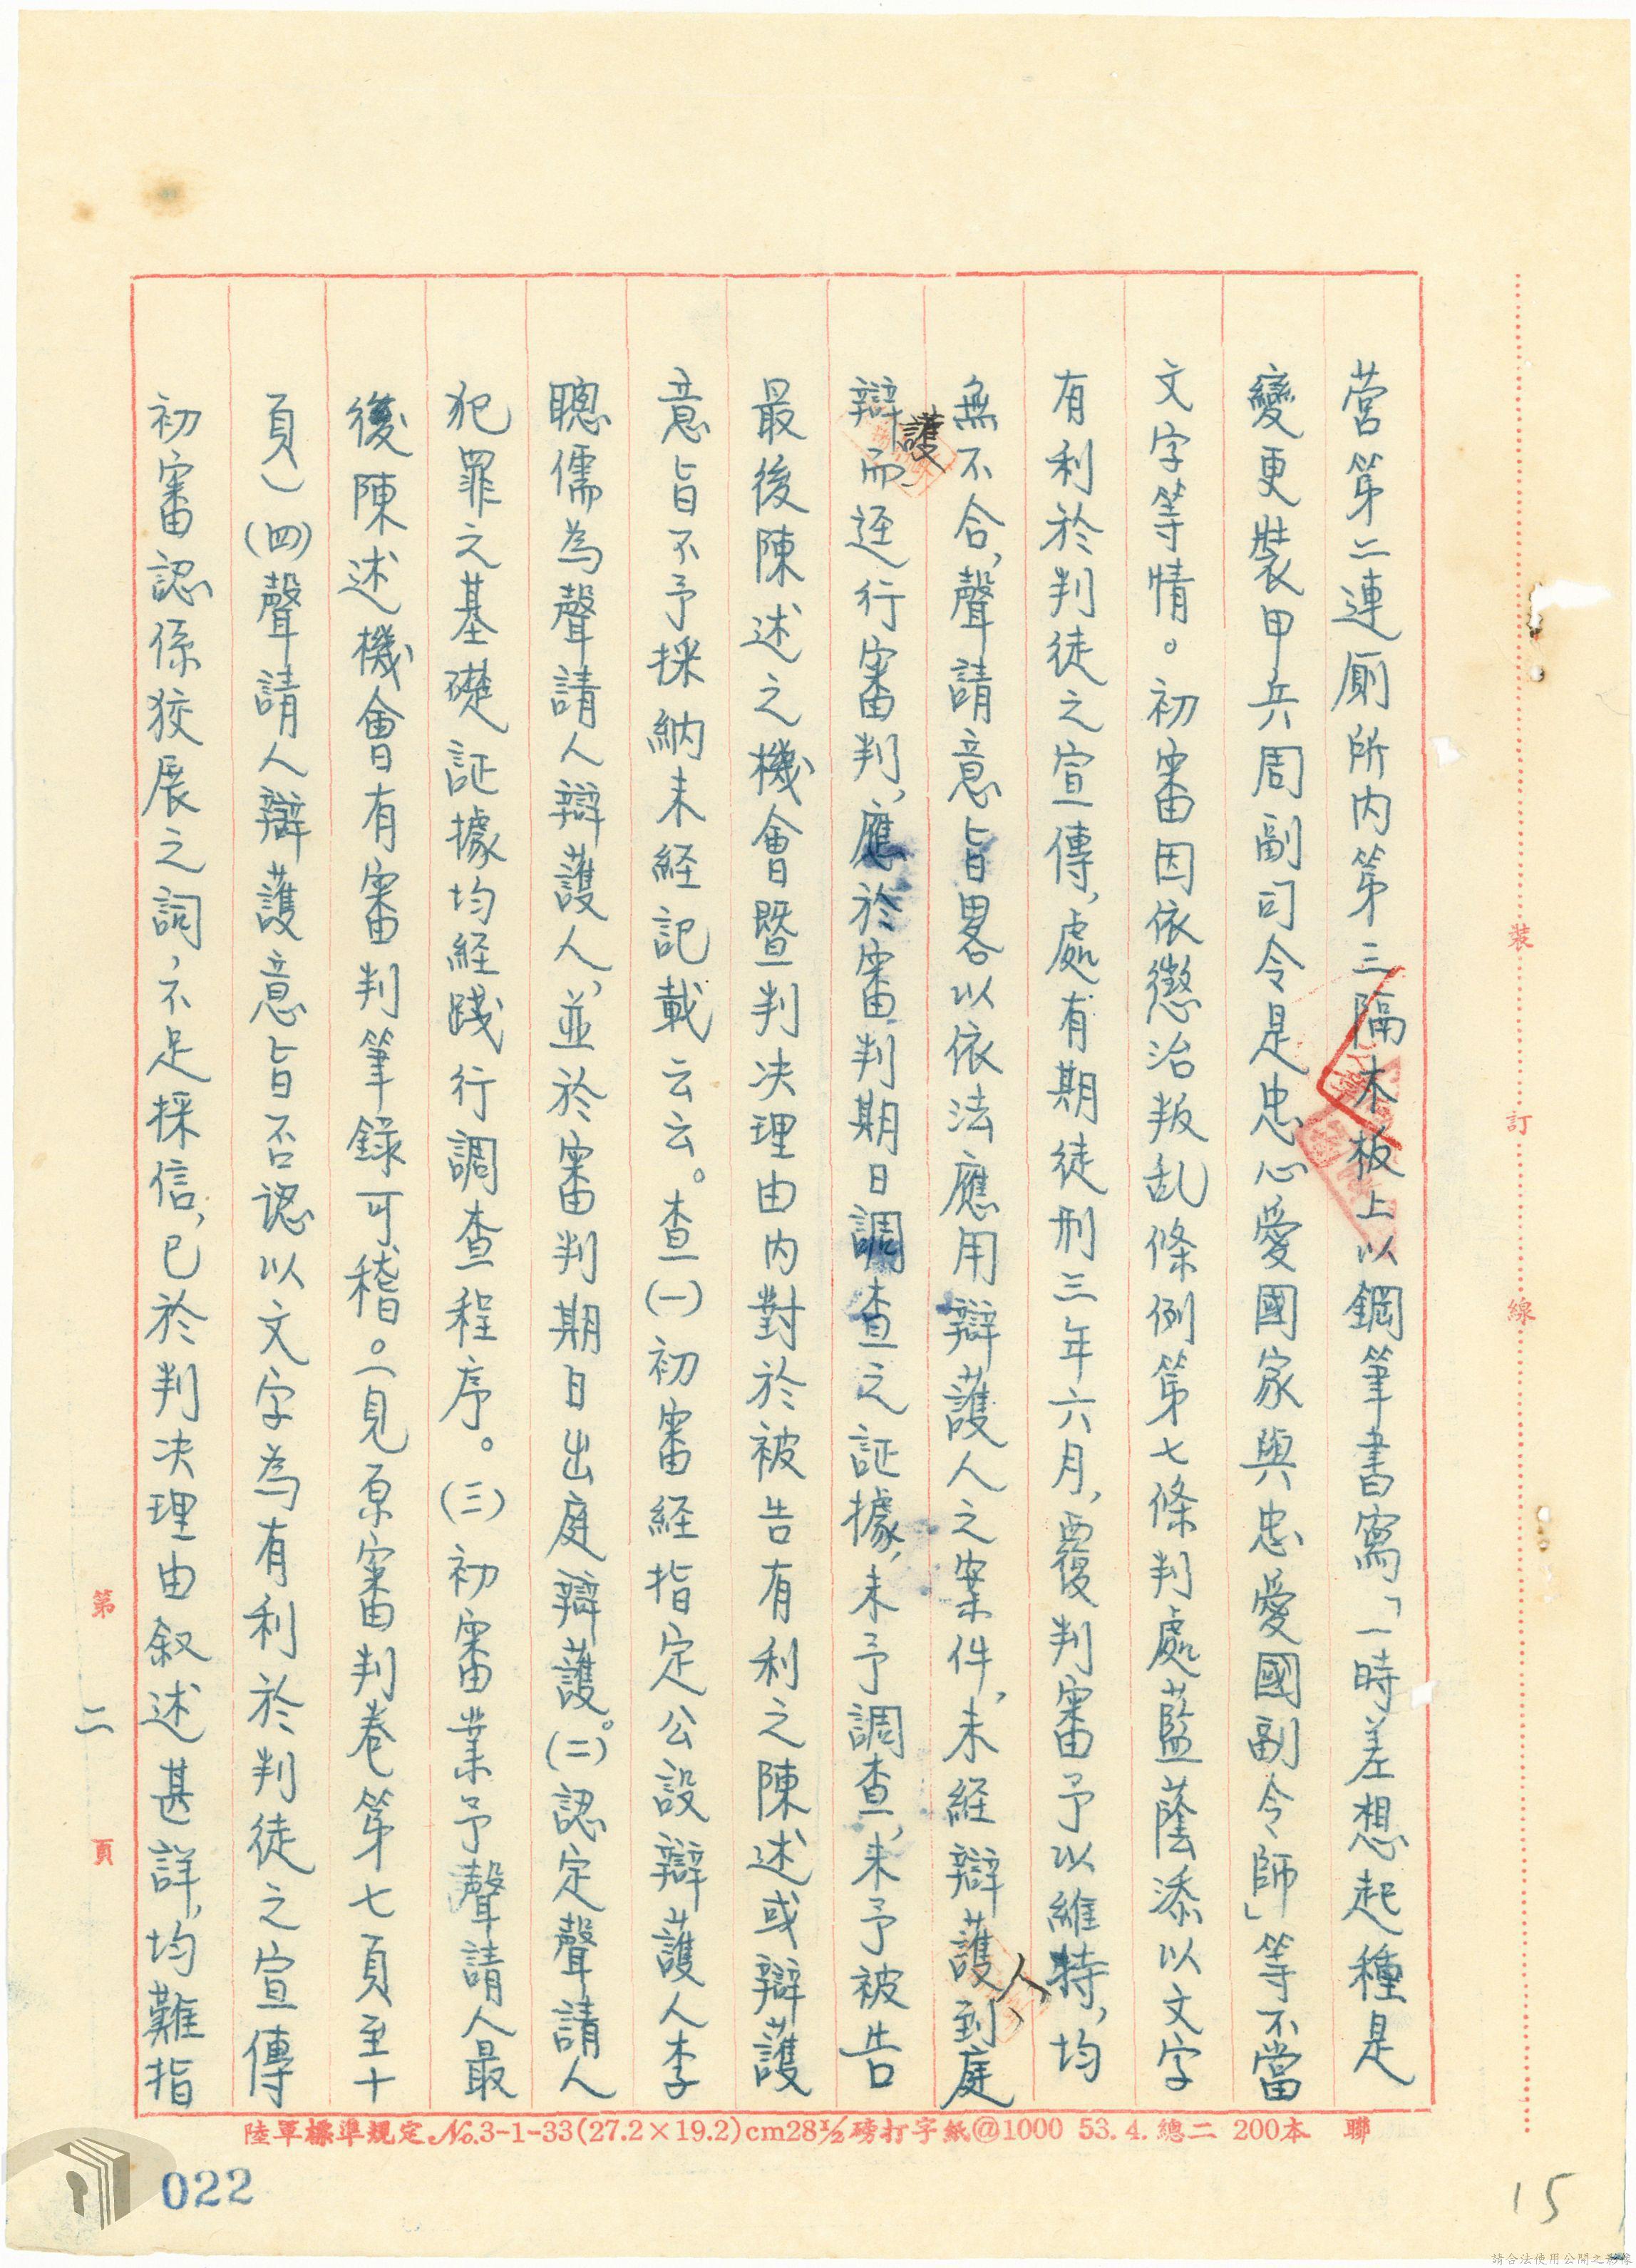 營第二連厠所內第三隔木板上以鋼筆書寫「一時差想起種是
變更裝甲兵周副司令是忠心愛國家與忠愛國副令師」等不當
文字等情。初審因依懲治叛乱條例第七條判處藍蔭添以文字
有利於判徒之宣傳，處有期徒刑三年六月，覆判審予以維持，均
無不合，聲請意旨畧以依法應用辯護人之案件，未経辯護人到庭
辯護而逕行審判，應於審判期日調查之証據，未予調查，未予被告
最後陳述之機會暨判決理由內對於被告有利之陳述或辯護
意旨不予採納未経記載云云。查(一)初審経指定公設辯護人李
聰儒為聲請人辯護人，並於審判期日出庭辯護。(二)認定聲請人
犯罪之基礎証據均経踐行調查程序。(三)初審業予聲請人最
後陳述機會有審判筆錄可稽。(見原審判卷第七頁至十
頁)(四)聲請人辯護意旨否認以文字為有利於判徒之宣傳
初審認係狡展之詞，不足採信，已於判決理由叙述甚詳，均難指
裝
訂
線
第二頁
陸軍標準規定№.3-1-33(27.2×19.2)cm28½磅打字紙@1000 53.4.總二 200本 聯
022
15
請合法使用公開之影像